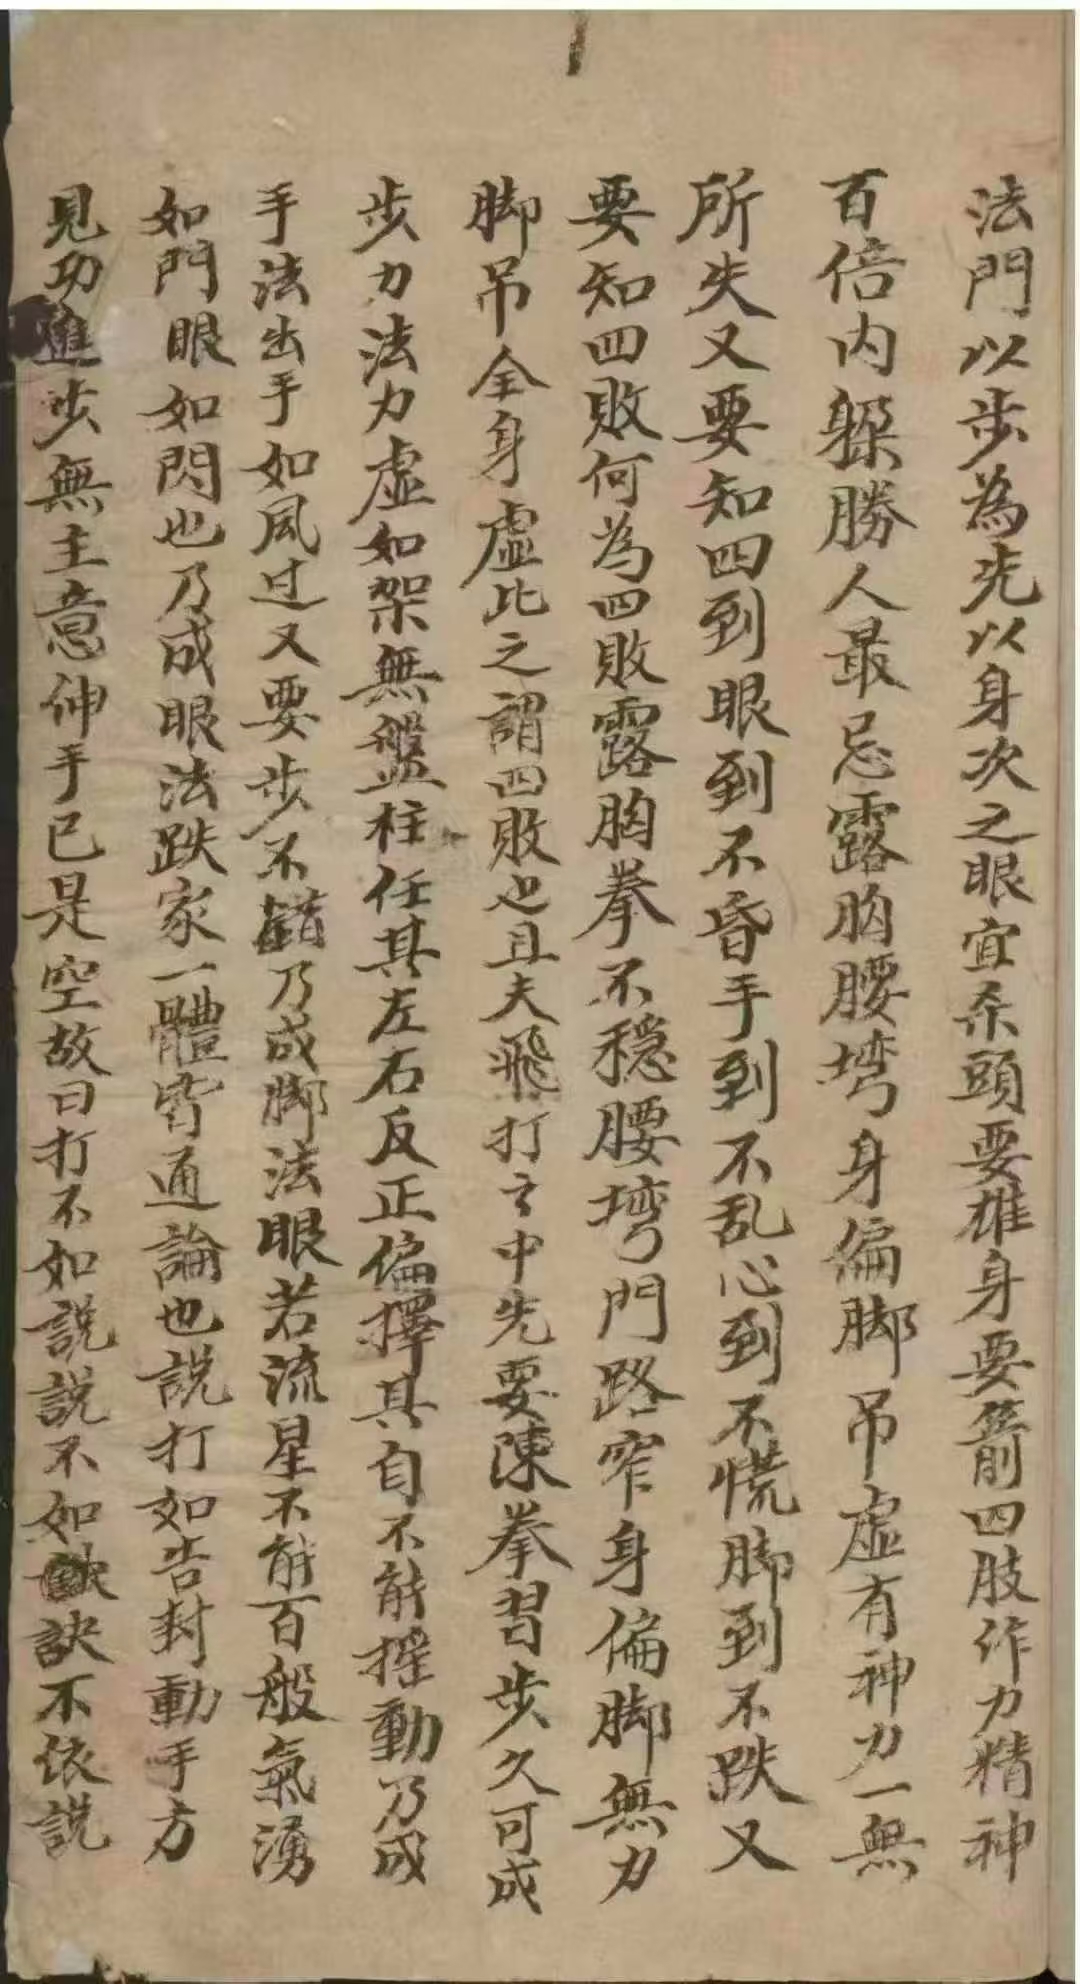 法門以步為先以身次之眼宜杀頭要雄身要箭四肢作力精神
百倍内躲勝人最忌露胸腰塆身偏脚吊虚有神力一無
所失又要知四到眼到不昏手到不乱心到不慌脚到不跌又
要知四敗何為四敗露胸拳不穩腰塆門路窄身偏脚無力
脚吊全身虚比之謂四敗也且夫飛打之中先要陳拳習步久可成
步力法力虚如架無盤柱任其左右反正偏擇其自不能摇動乃成
手法出手如風过又要步不錯乃成脚法眼若流星不能百般氣湧
如門眼如閃也乃成眼法跌家一體皆通論也説打如告封動手方
見功進步無主意伸手已是空故曰打不如説説不如訣不依説